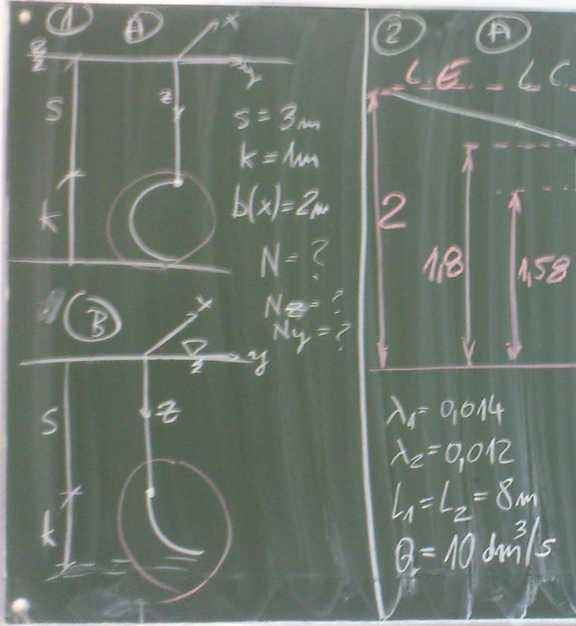 1 A
x
y
z
S
k
s = 3m
k = 1m
b(x) = 2m
N = ?
Nz = ?
Ny = ?
B
x
y
z
S
k
2 A
L.E. L.C.
2
1,8
1,58
λ1 = 0,014
λ2 = 0,012
L1 = L2 = 8m
Q = 10 dm³/s